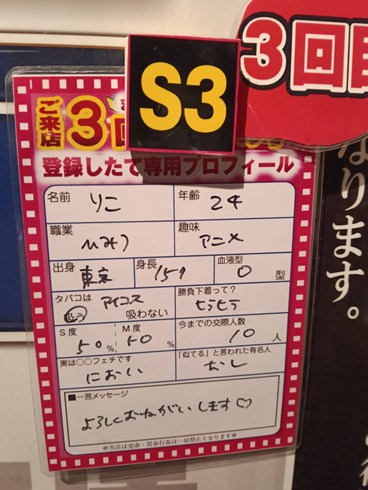 S3
3回目
ご来店
3回
登録したて専用プロフィール
名前 りこ 年齢 24
職業 ひみつ 趣味 アニメ
出身 東京 身長 157 血液型 O 型
タバコは アイコス 吸う 吸わない 勝負下着って? ヒラヒラ
S度 50% M度 50% 今までの交際人数 10人
実は〇〇フェチです におい 「似てる」と言われた有名人 なし
■一言メッセージ
よろしくおねがいします♡
※当店は売春・買春行為は一切禁止となります※
なります。